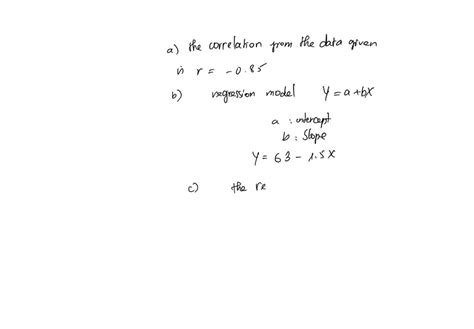 a) the correlation from the data given
is r = -0.85
b) regression model Y = a + bX
a : intercept
b : Slope
Y = 63 - 1.5X
c) the re